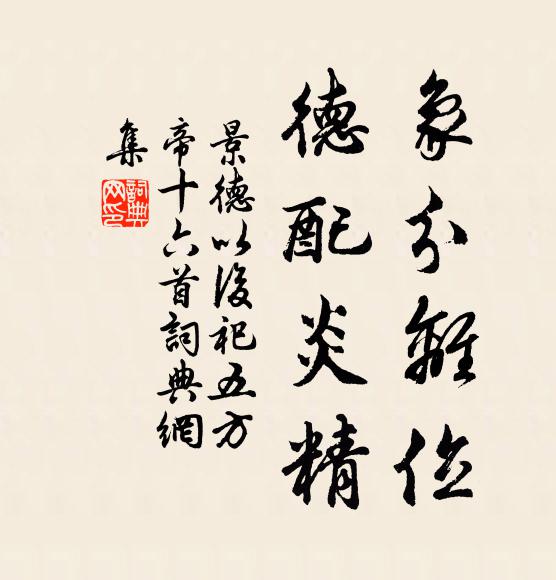 象分離位
德配炎精
景德以後祀五方
帝十六首詞典網
集
詞典網印